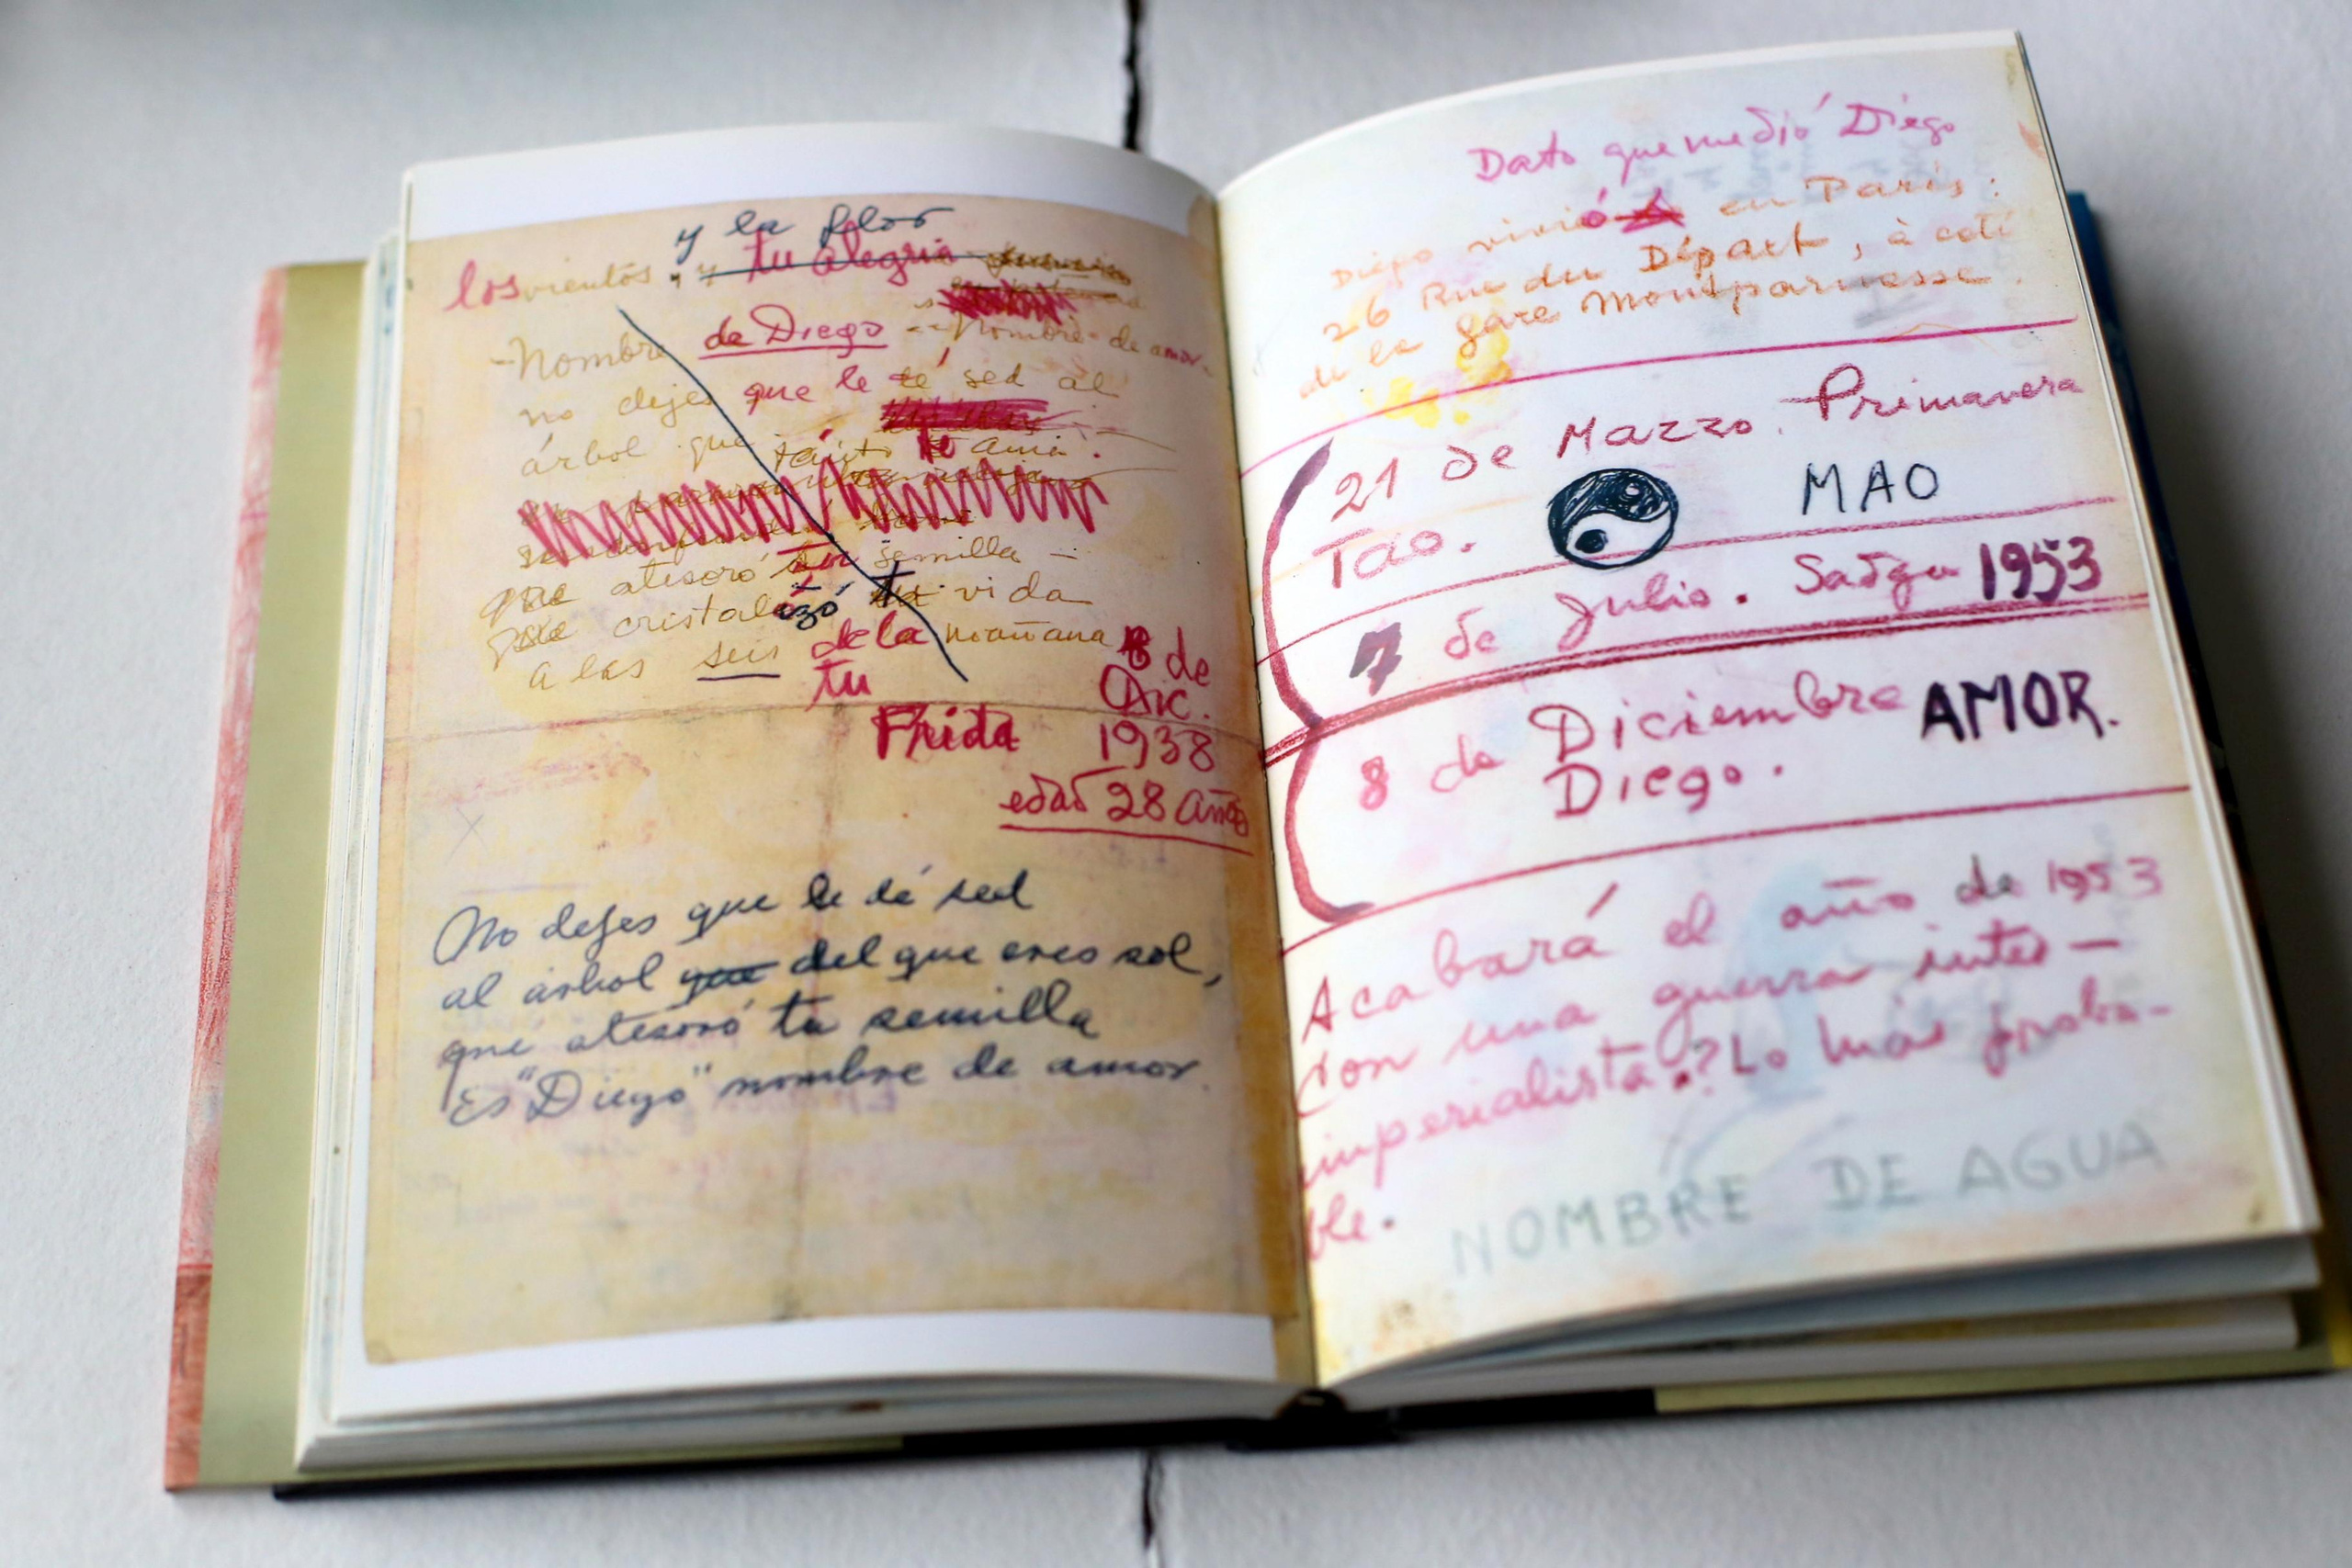 y la flor
los vientos, y tu alegria
- Nombre de Diego - Nombre - de amor -
no dejes que le dé sed al
árbol que tánto te ama.
que atesoró tu semilla -
que cristalizó tu vida
a las seis de la mañana
tu
Frida
8 de
Dic.
1938
edad 28 años
No dejes que le dé sed
al árbol que del que eres sol,
que atesoró tu semilla
Es "Diego" nombre de amor.
Dato que me dió Diego
Diego vivió en Paris:
26 Rue du Départ, à coté
de la gare Montparnasse.
21 de Marzo. Primavera
Tao. MAO
7 de Julio. Sadga 1953
8 de Diciembre AMOR.
Diego.
Acabará el año de 1953
con una guerra inter-
imperialista? Lo más proba-
ble.
NOMBRE DE AGUA